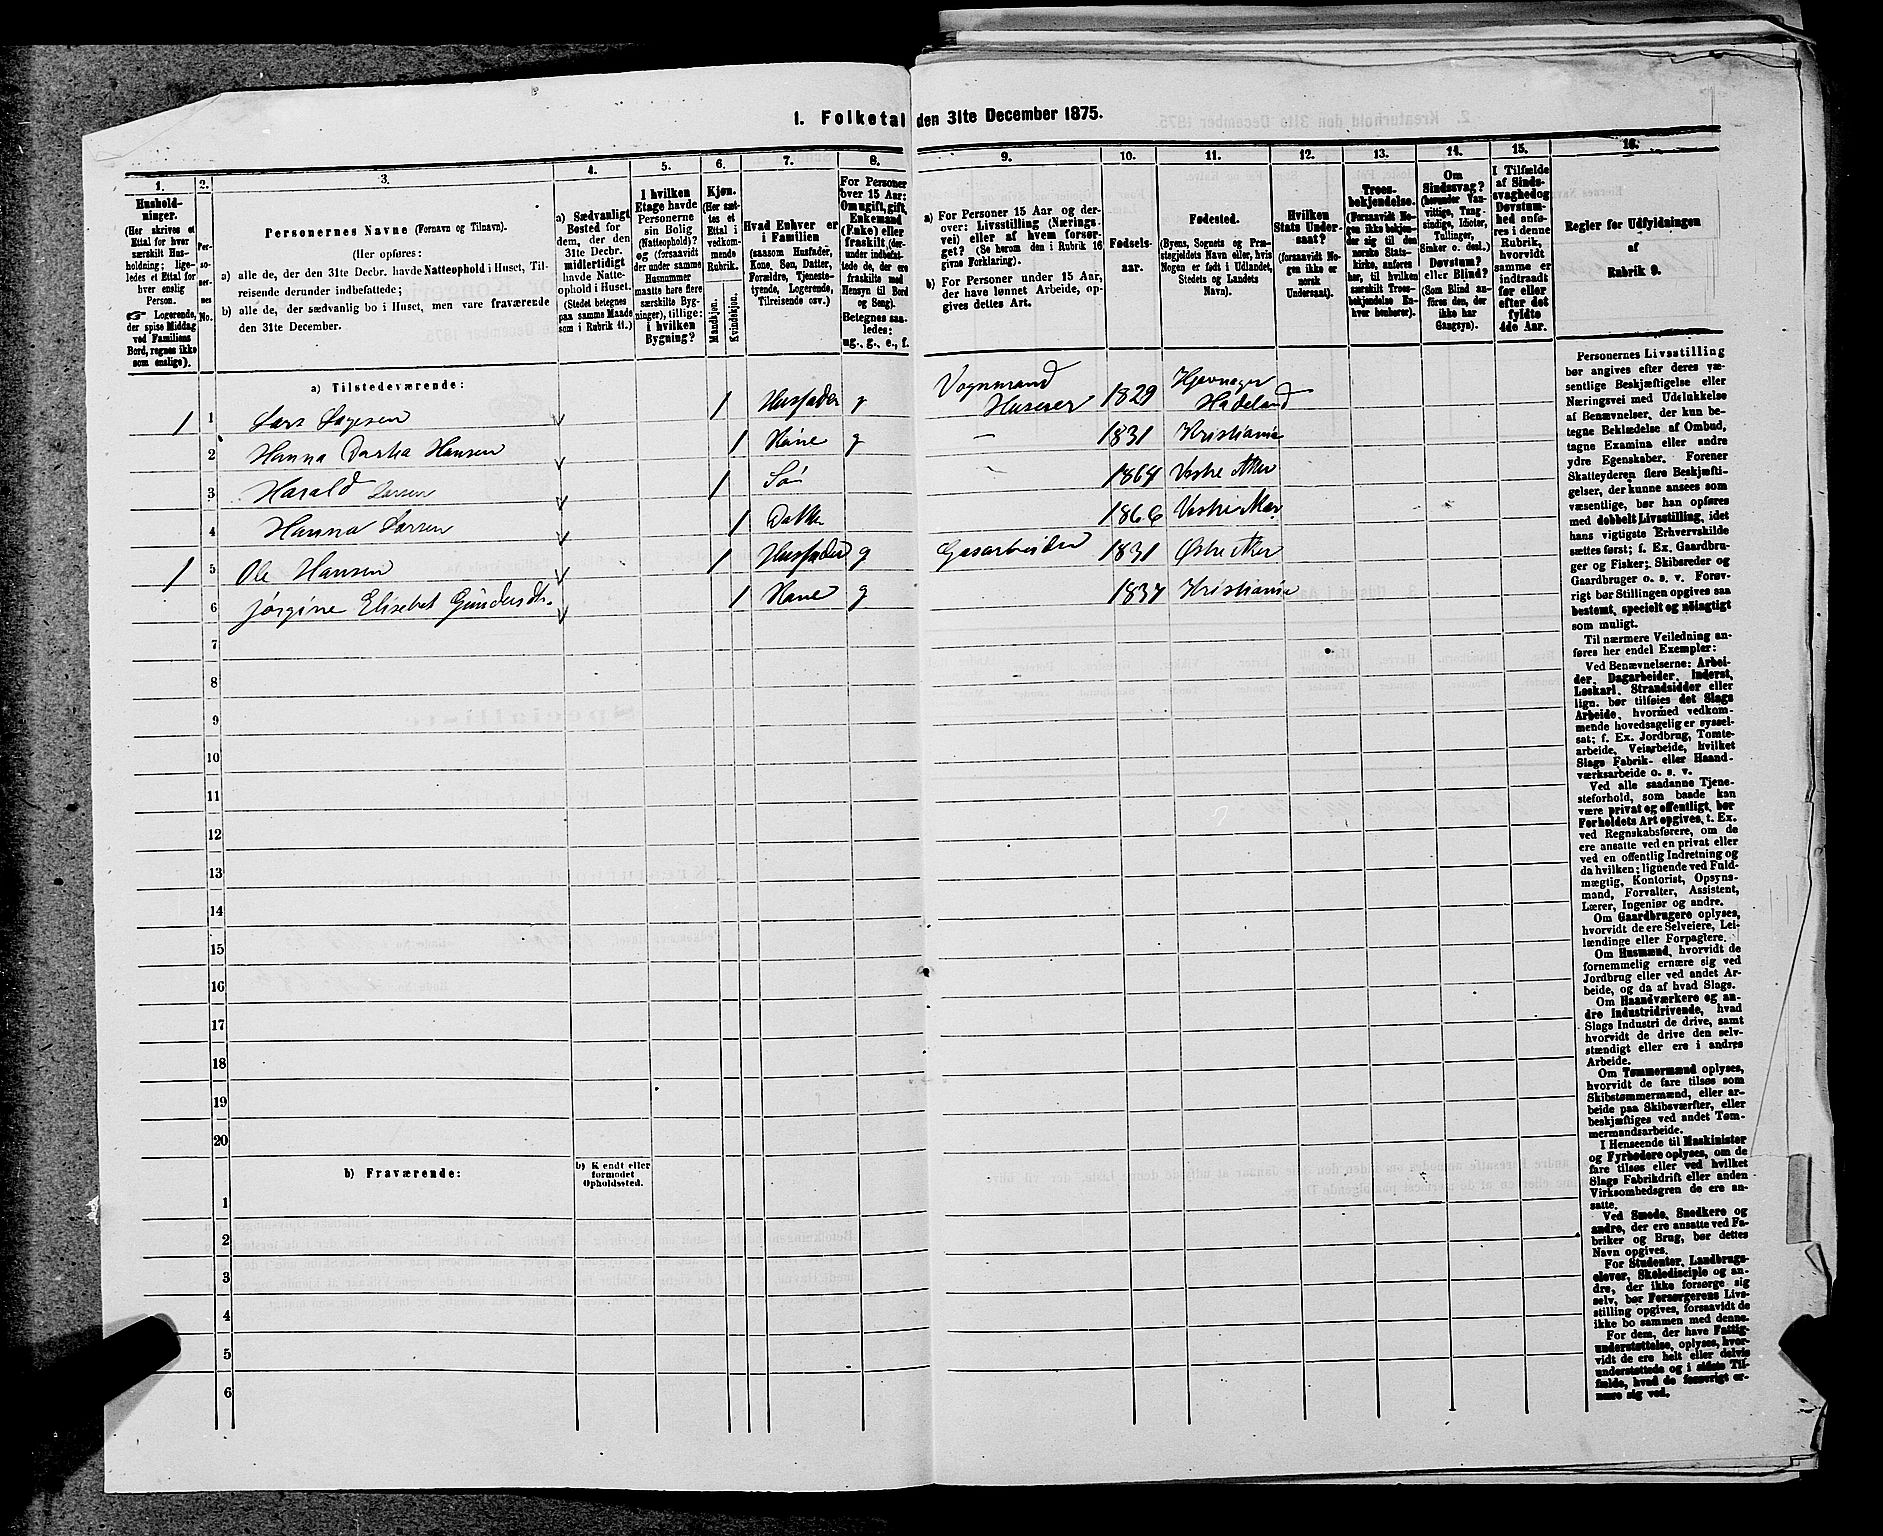 1. Folketal den 31te December 1875.
1. 2. 3. 4. 5. 6. 7. 8. 9. 10. 11. 12. 13. 14. 15. 16.
Hushold-
ninger.
(Her skrives et
Ettal for hver
særskilt Hus-
holdning; lige-
ledes et Ettal for
hver enslig
Person.
☞ Logerende,
der spise Middag
ved Familiens
Bord, regnes ikke
som enslige).
Per-
so-
ner-
nes
No.
Personernes Navne (Fornavn og Tilnavn).
(Her opføres:
a) alle de, der den 31te Decbr. havde Natteophold i Huset, Til-
reisende derunder indbefattede;
b) alle de, der sædvanlig bo i Huset, men vare fraværende
den 31te December.
a) Sædvanligt
Bosted for
dem, der den
31te Decbr.
midlertidigt
havde Natte-
ophold i Huset.
(Stedet betegnes
paa samme Maade
som i Rubrik 11.)
I hvilken
Etage havde
Personerne
sin Bolig
(Natteophold)?
og (forsaavidt
der under samme
Matr. No. flere
særskilte Byg-
ninger), tillige:
i hvilken
Bygning?
Kjøn.
(Her sæt-
tes et
Ettal i
vedkom-
mende
Rubrik.
Mandkjøn.
Kvindekjøn.
Hvad Enhver er
i Familien
(saasom Husfader,
Kone, Søn, Datter,
Forældre, Tjeneste-
tyende, Logerende,
Tilreisende osv.)
For Personer
over 15 Aar:
Om ugift, gift,
Enkemand
(Enke) eller
fraskilt (der-
under indbefat-
tede de, der ere
fraskilte med
Hensyn til Bord
og Seng).
Betegnes saa-
ledes:
ug., g., e., f.
a) For Personer 15 Aar og der-
over: Livsstilling (Nærings-
vei) eller af hvem forsør-
get? (Se herom den i Rubrik 16
givne Forklaring).
b) For Personer under 15 Aar,
der have lønnet Arbeide, op-
gives dettes Art.
Fødsels-
aar.
Fødested.
(Byens, Sognets og Præ-
stegjeldets Navn eller, hvis
Nogen er født i Udlandet,
Stedets og Landets
Navn).
Hvilken
Stats Under-
saat?
(forsaavidt No-
gen ikke er
norsk
Undersaat).
Troes-
bekjendelse.
(Forsaavidt No-
gen ikke bekjen-
der sig til den
norske Stats-
kirke, anføres
her, til hvilken
særskilt Troes-
bekjendelse En-
hver henhører).
Om
Sindssvag?
(herunder Van-
vittige, Tung-
sindige, Idioter,
Tullinger,
Sinker o. desl.)
Døvstum?
eller Blind? (Som Blind an-
føres den, der
ikke har
Gangsyn).
I Tilfælde
af Sinds-
svaghed og
Døvstum-
hed anfø-
res i denne
Rubrik,
hvorvidt
samme er
indtraadt
før eller
efter det
fyldte
4de Aar.
Regler for Udfyldningen
af
Rubrik 9.
a) Tilstedeværende:
1 1 Lars Larsen 1 Husfader g Vognmand Huseier 1829 Hadeland
2 Hanna Hansen 1 Kone g 1831 Kristiania
3 Harald Larsen 1 Søn 1864 Vestre Aker
4 Hanna Larsen 1 Datter 1866 Vestre Aker
1 5 Ole Hansen 1 Husfader g Gasarbeider 1831 Østre Aker
6 Jørgine Elisebet Gundersdtr. 1 Kone g 1837 Kristiania
7
8
9
10
11
12
13
14
15
16
17
18
19
20
b) Fraværende:
b) Kjendt eller
formodet
Opholdssted.
1
2
3
4
5
6
Personernes Livsstilling
bør angives efter deres væ-
sentlige Beskjæftigelse eller
Næringsvei med Udelukkelse
af Benævnelser, der kun be-
tegne Beklædelse af Ombud,
tagne Examina eller andre
ydre Egenskaber. Forener
Skatteyderen flere Beskjæfti-
gelser, der kunne ansees som
væsentlige, bør han opføres
med dobbelt Livsstilling, idet
hans vigtigste Erhvervskilde
sættes først; f. Ex. Gaardbru-
ger og Fisker; Skibsreder og
Gaardbruger o. s. v. Forøv-
rigt bør Stillingen opgives saa
bestemt, specielt og nøiagtigt
som muligt.
Til nærmere Veiledning an-
føres her endel Exempler:
Ved Benævnelserne: Arbei-
der, Dagarbeider, Inderst,
Løskarl, Strandsidder eller
lign. bør tilføies det Slags
Arbeide, hvormed vedkom-
mende hovedsagelig er syssel-
sat; f. Ex. Jordbrug, Tomte-
arbeide, Veiarbeide, hvilket
Slags Fabrik- eller Haand-
værksarbeide o. s. v.
Ved alle saadanne Tjene-
steforhold, som baade kan
være privat og offentligt, bør
Forholdets Art opgives, t. Ex.
ved Regnskabsførere, om de
ere ansatte ved en privat eller
ved en offentlig Indretning og
da hvilken; lignende ved Fuld-
mægtig, Kontorist, Opsyns-
mand, Forvalter, Assistent,
Lærer, Ingeniør og andre.
Om Gaardbrugere oplyses,
hvorvidt de ere Selveiere, Lei-
lændinge eller Forpagtere.
Om Husmænd, hvorvidt de
fornemmelig ernære sig ved
Jordbrug eller ved andet Ar-
beide, og da af hvad Slags.
Om Haandværkere og an-
dre Industridrivende, hvad
Slags Industri de drive, samt
hvorvidt de drive den selv-
stændigt eller ere i andres
Arbeide.
Om Tømmermænd oplyses,
hvorvidt de fare tilsøs som
Skibstømmermænd, eller ar-
beide paa Skibsværfter, eller
beskjæftiges ved andet Tøm-
mermandsarbeide.
I Henseende til Maskinister
og Fyrbødere oplyses, om de
fare tilsøs eller ved hvilket
Slags Fabrikdrift eller anden
Virksomhedsgren de ere an-
satte.
Ved Smede, Snedkere og
andre, der ere ansatte ved Fa-
briker og Brug, bør dettes
Navn opgives.
For Studenter, Landbrugs-
elever, Skoledisciple og an-
dre, der ikke forsørge sig
selv, bør Forsørgerens Livs-
stilling opgives, forsaavidt de
ikke bo sammen med denne.
For dem, der have Fattig-
understøttelse, oplyses, hvor-
vidt de ere helt eller delvis
understøttede og i sidste Til-
fælde, hvad de forøvrigt er-
nære sig ved.